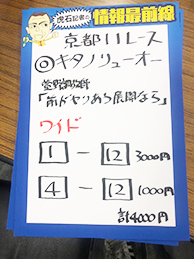 虎石記者の
情報最前線
京都11レース
◎キタノリューオー
「前がやりあう展開なら」
ワイド
1 - 12 3000円
4 - 12 1000円
計4000円